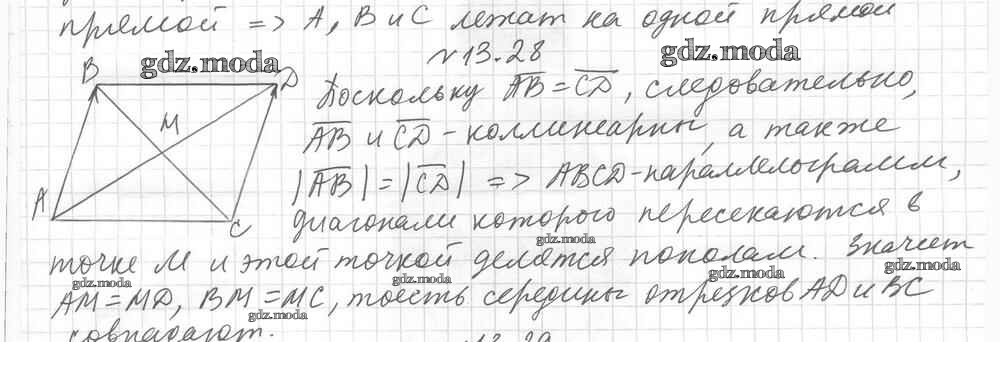 прямой => А, В и С лежат на одной прямой
№13.28
gdz.moda
gdz.moda
B
D
M
A
C
Поскольку AB = CD, следовательно,
AB и CD - коллинеарны, а также
|AB| = |CD| => ABCD - параллелограмм,
диагонали которого пересекаются в
gdz.moda
точке M и этой точкой делятся пополам. Значит
gdz.moda
gdz.moda
gdz.moda
gdz.moda
AM = MD, BM = MC, тоесть середины отрезков AD и BC
gdz.moda
совпадают.
13.29